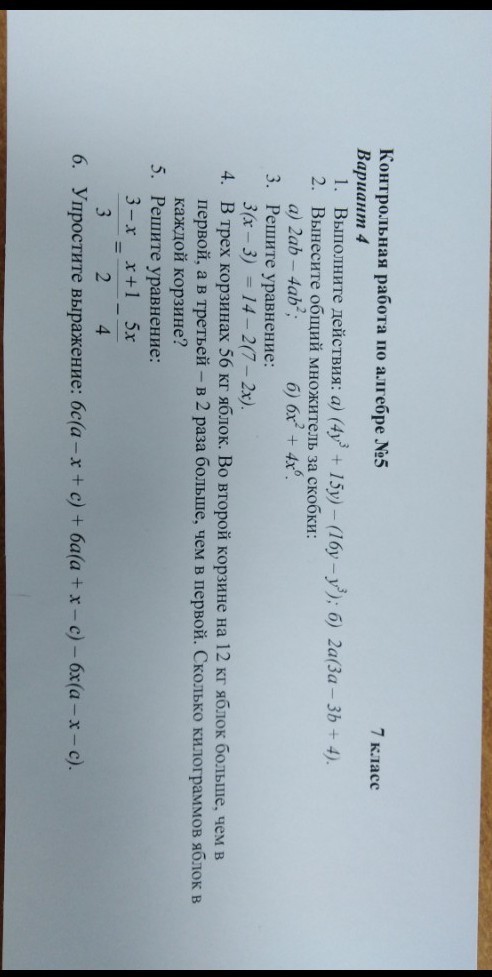 Контрольная работа по алгебре №5 7 класс
Вариант 4
1. Выполните действия: а) (4y³ + 15y) – (16y – y³); б) 2a(3a – 3b + 4).
2. Вынесите общий множитель за скобки:
а) 2ab – 4ab²; б) 6x² + 4x⁶.
3. Решите уравнение:
3(x – 3) = 14 – 2(7 – 2x).
4. В трех корзинах 56 кг яблок. Во второй корзине на 12 кг яблок больше, чем в
первой, а в третьей – в 2 раза больше, чем в первой. Сколько килограммов яблок в
каждой корзине?
5. Решите уравнение:
3 – x x + 1 5x
= –
3 2 4
6. Упростите выражение: 6c(a – x + c) + 6a(a + x – c) – 6x(a – x – c).